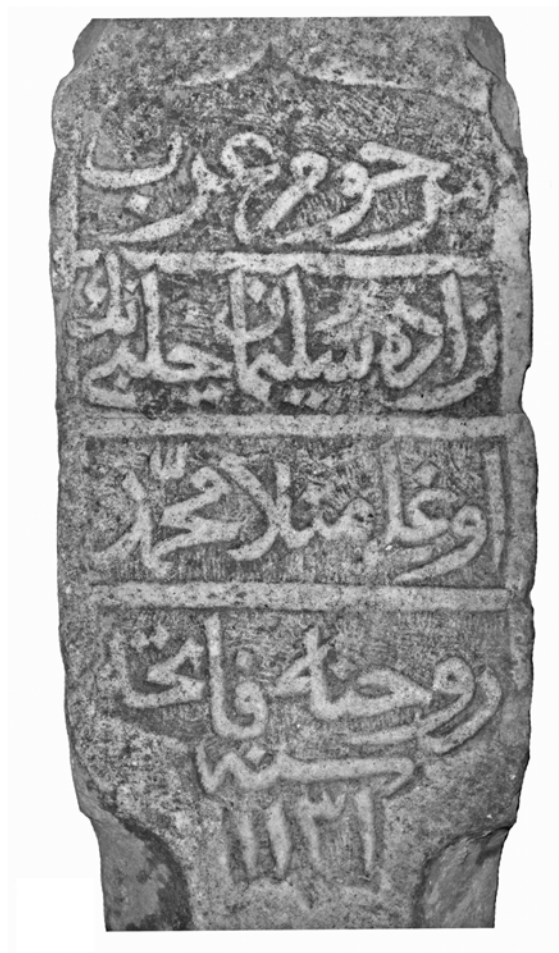 مرحوم عرب
زاده سليمان چلبينك
اوغلى منلا محمد
روحنه فاتحه
سنه
١١٣١